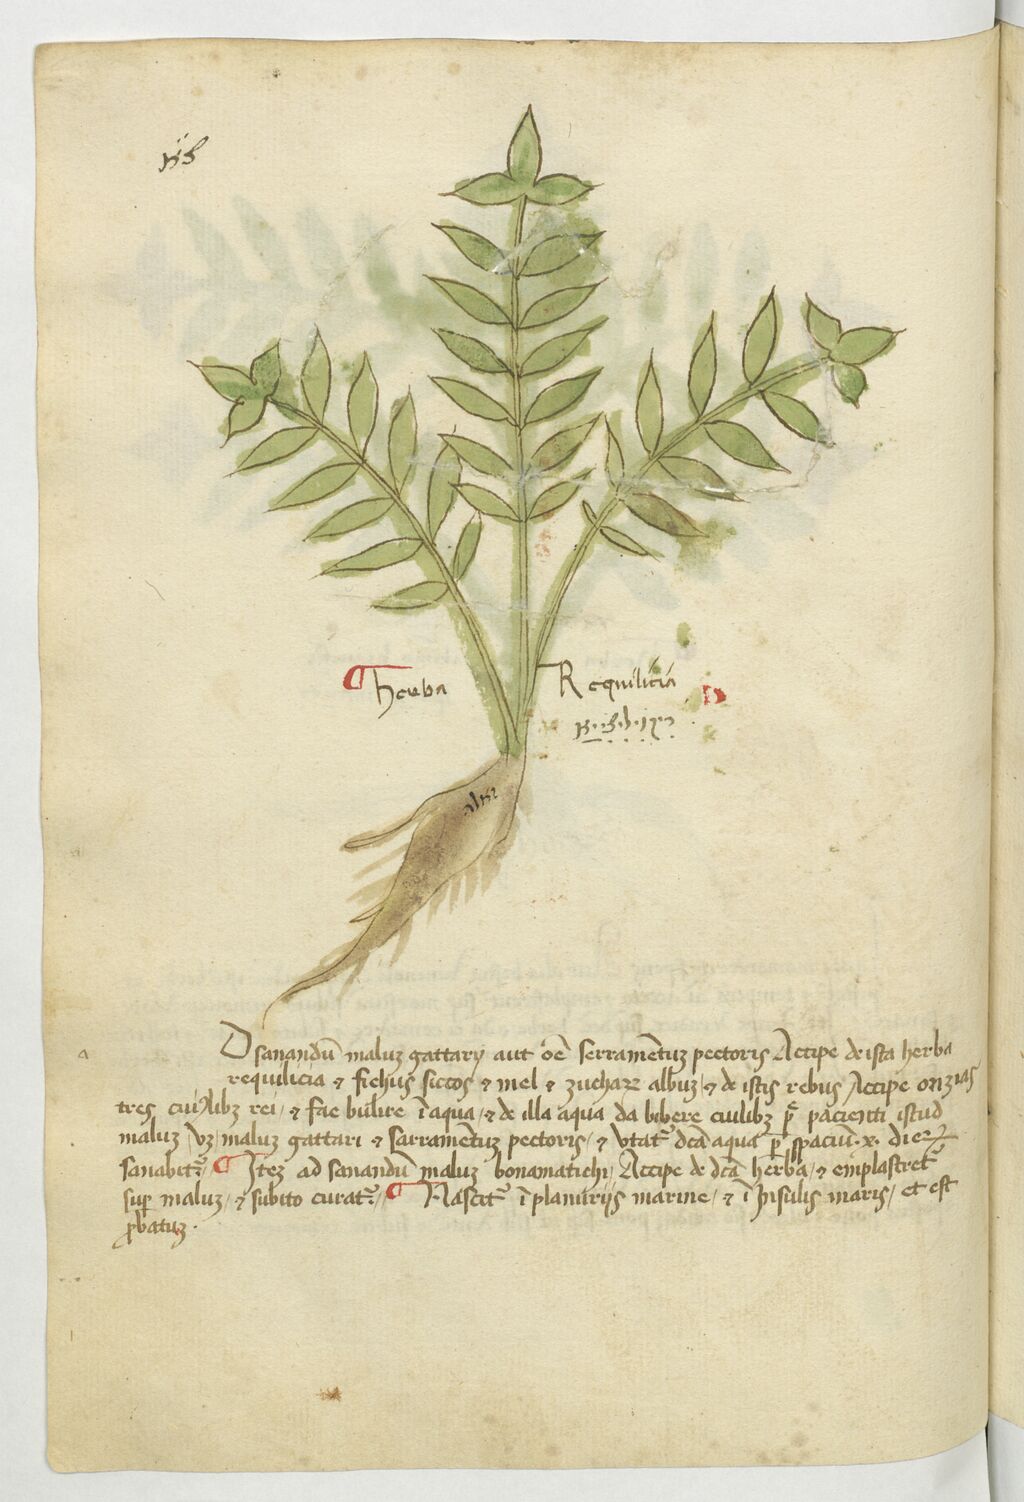 herba Requilicia
D sanandũ maluz gattarij aut oẽ serramẽtuz pectoris Accipe de ista herba
requilicia & fichus siccos & mel & zucharz albuz & de istis rebus Accipe onzias
tres cuilibz rei / & fac bulire ĩ aqua / & de illa aqua da bibere cuilibz pacienti istud
maluz vz / maluz gattari & sarramẽtuz pectoris / & utat dcã aqua p spaciũ .x. dierz
sanabit / Itez ad sanandũ maluz bonamatichi / Accipe de dcã herba / & emplastret
sup maluz / & subito curat / Nascit ĩ planitrijs marine / & ĩ Insulis maris / et est
pbatuz .